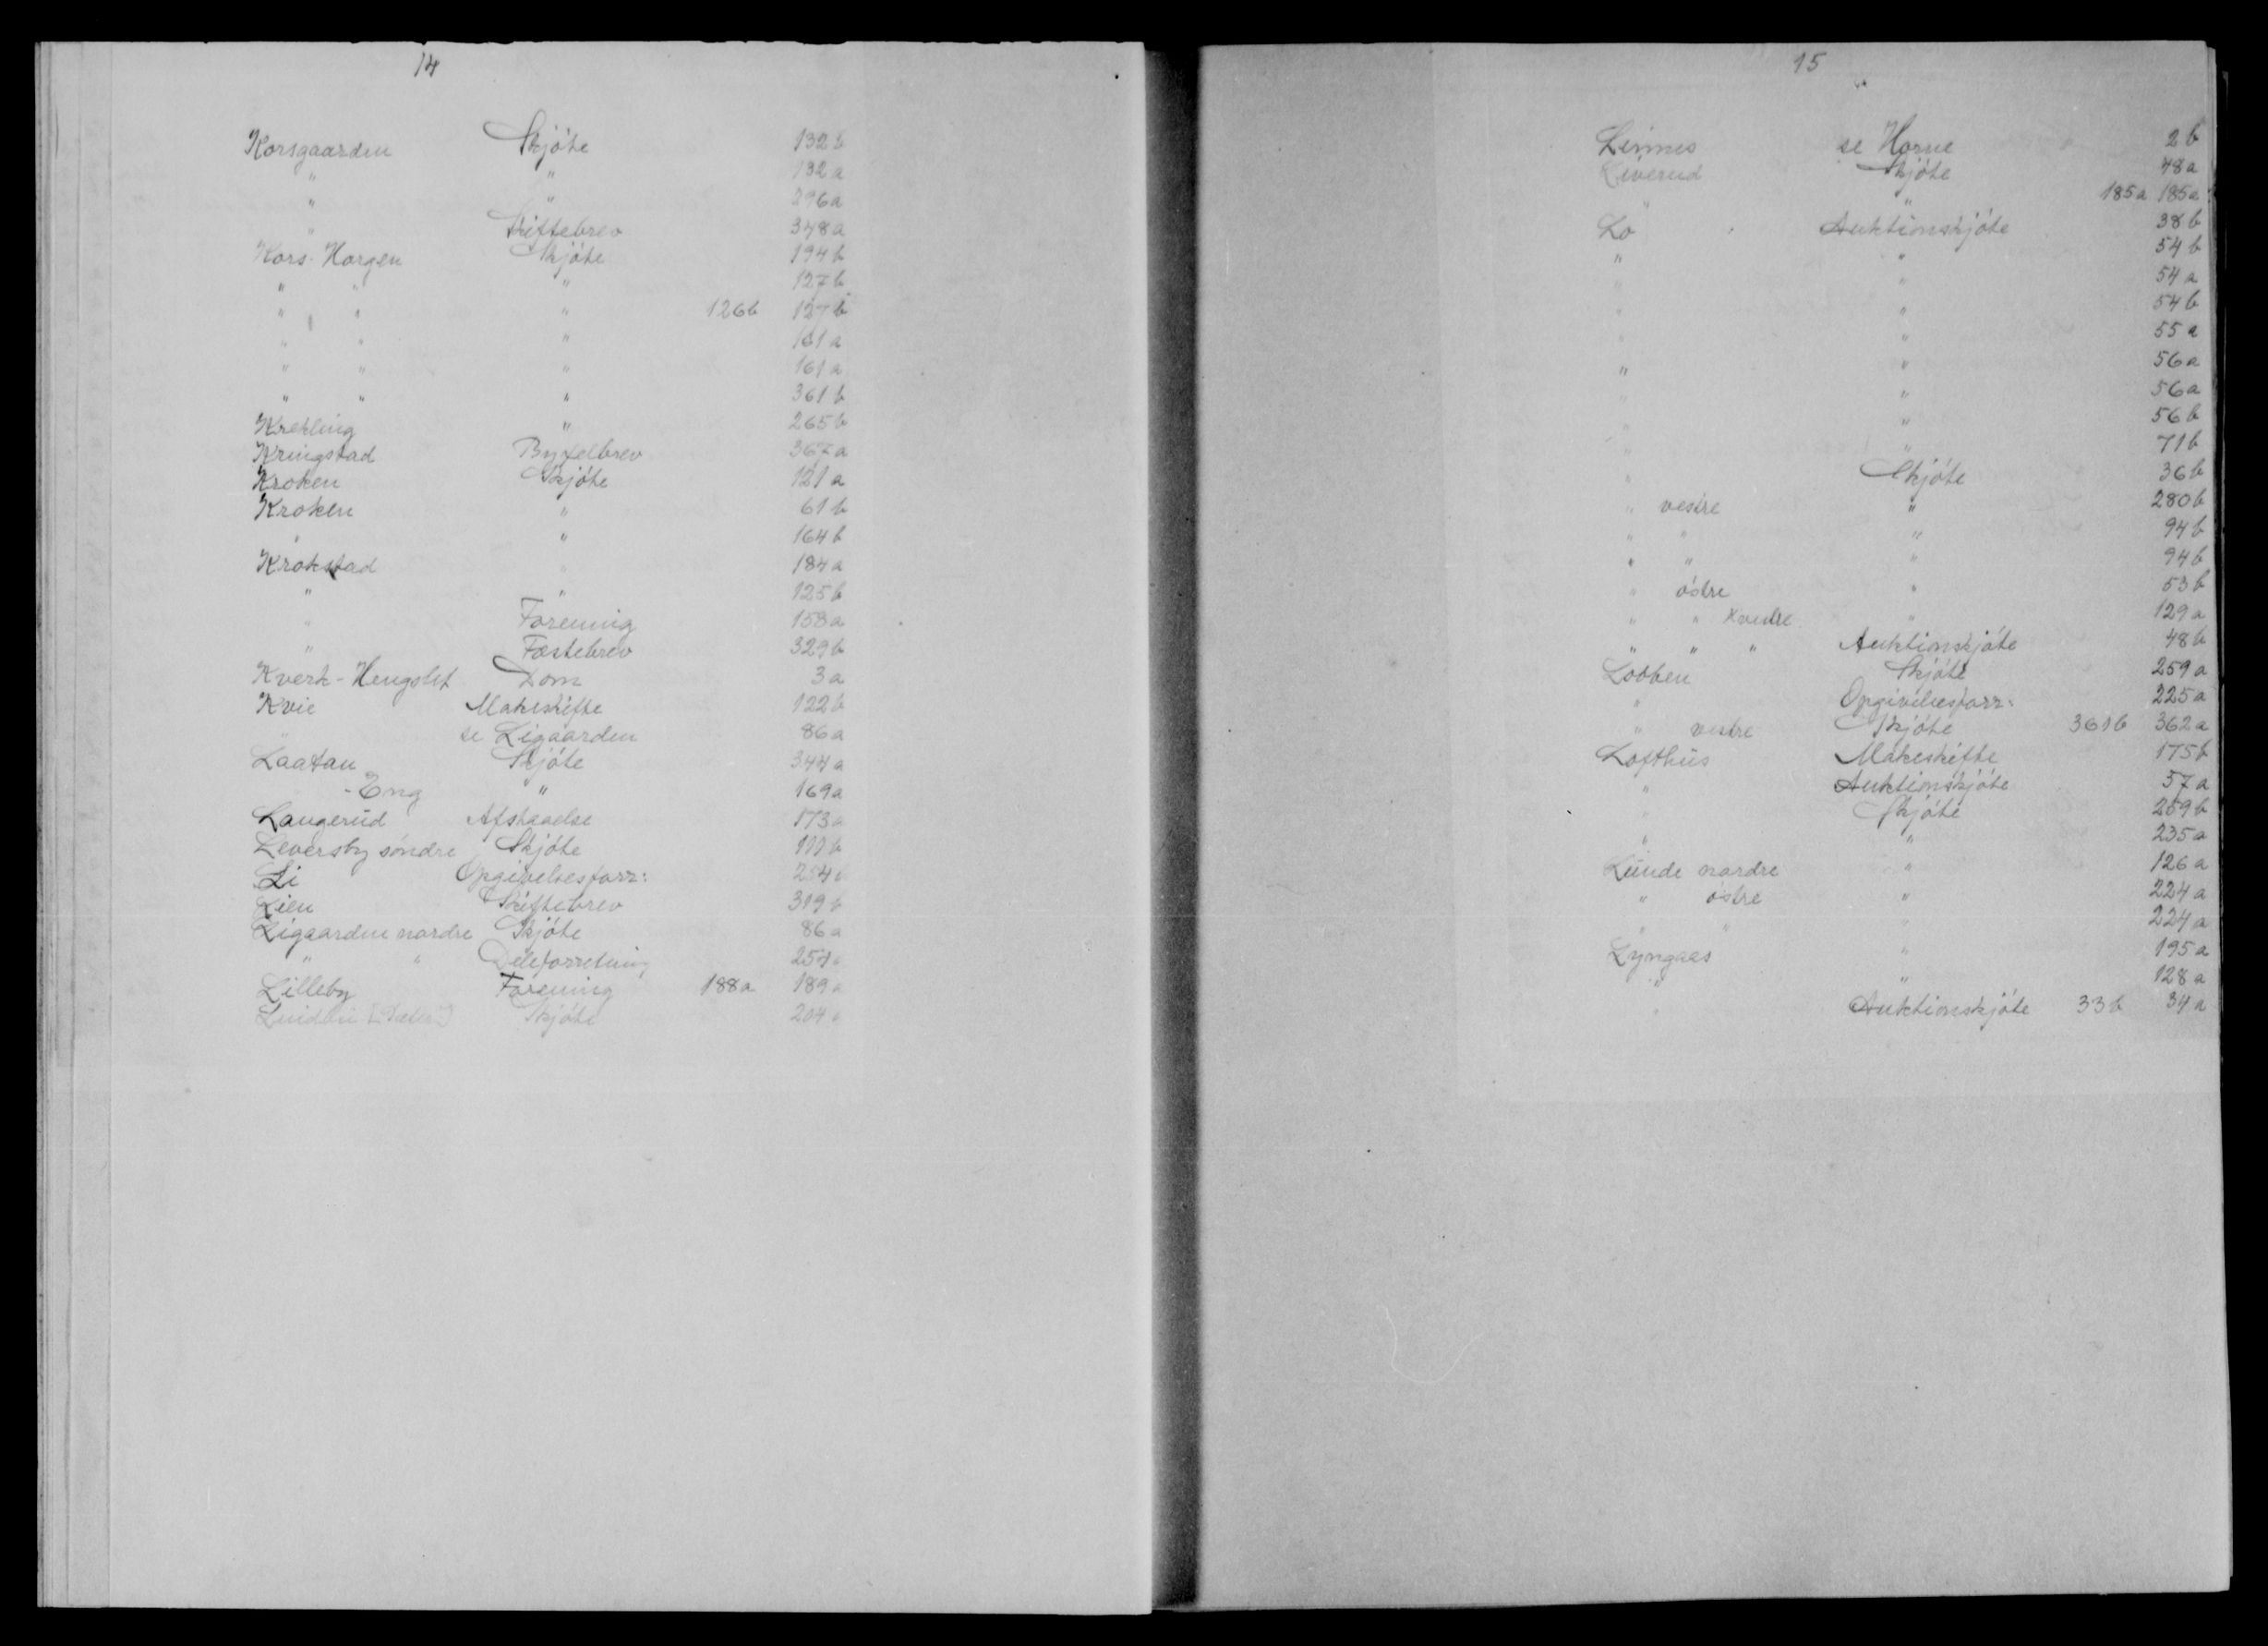 14
Korsgaarden Skjöte 132b
" " 132a
" " 296a
" Skiftebrev 348a
Kors-Horgen Skjöte 194b
" " " 127b
" " " 126b 127b
" " " 161a
" " " 161a
" " " 361b
Krekling " 265b
Kringstad Byxelbrev 367a
Kroken Skjöte 121a
Kroken " 61b
" " 164b
Krokstad " 184a
" " 125b
" Forening 158a
" Fæstebrev 329b
Kverk-Hengslet Dom 3a
Kvie Makeskifte 122b
" se Ligaarden 86a
Laatan Skjöte 344a
-Eng " 169a
Langerud Afstaaelse 173a
Leversby söndre Skjöte 111b
Li Opgivelsesforr: 254
Lien Skiftebrev 319b
Ligaarden nordre Skjöte 86a
" " Deleforretning 254
Lilleby Forening 188a 189a
Skjöte 204
15
Linnes se Horne 2b
Liverud Skjöte 48a
" " 185a 185a
Lö Auktionskjöte 38b
" " 54b
" " 54a
" " 54b
" " 55a
" " 56a
" " 56a
" " 56b
" " 71b
" Skjöte 36b
" vestre " 280b
" " " 94b
" " " 94b
" östre " 53b
" " " 129a
" " " Auktionskjöte 48b
Lobben Skjöte 259a
" Opgivelsesforr: 225a
" vestre Skjöte 361b 362a
Lofthus Makeskifte 175b
" Auktionskjöte 57a
" Skjöte 259b
" " 235a
Lunde nordre " 126a
" östre " 224a
" " " 224a
Lyngaas " 195a
" " 128a
" Auktionskjöte 33b 34a